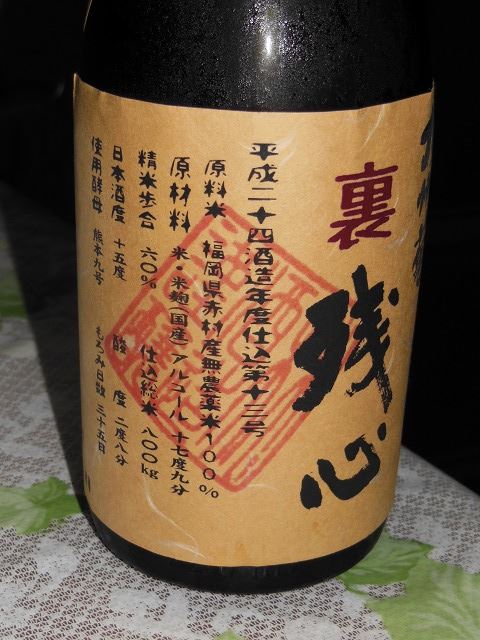 裏
残心
平成二十四酒造年度仕込第十三号
原料米 福岡県赤村産無農薬米100%
原材料 米・米麹(国産)アルコール 十七度九分
精米歩合 六〇% 仕込総米 八〇〇kg
日本酒度 十五度 酸度 二度八分
使用酵母 熊本九号 もろみ日数 三十五日